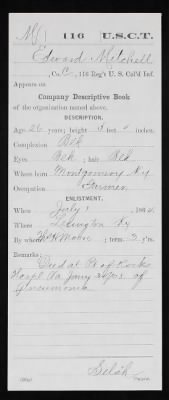 M | 116 | U.S.C.T.
Edward Mitchell
, Co. C, 116 Reg't U. S. Col'd Inf.
Appears on
Company Descriptive Book
of the organization named above.
DESCRIPTION.
Age 26 years; height 5 feet inches.
Complexion Blk
Eyes Blk ; hair Blk
Where born Montgomery Ky
Occupation Farmer
ENLISTMENT.
When July 1 , 1864.
Where Lexington Ky
By whom Moore ; term 3 y'rs.
Remarks:
Died at
Hospl Va Jany of
Pneumonia
Copyist.